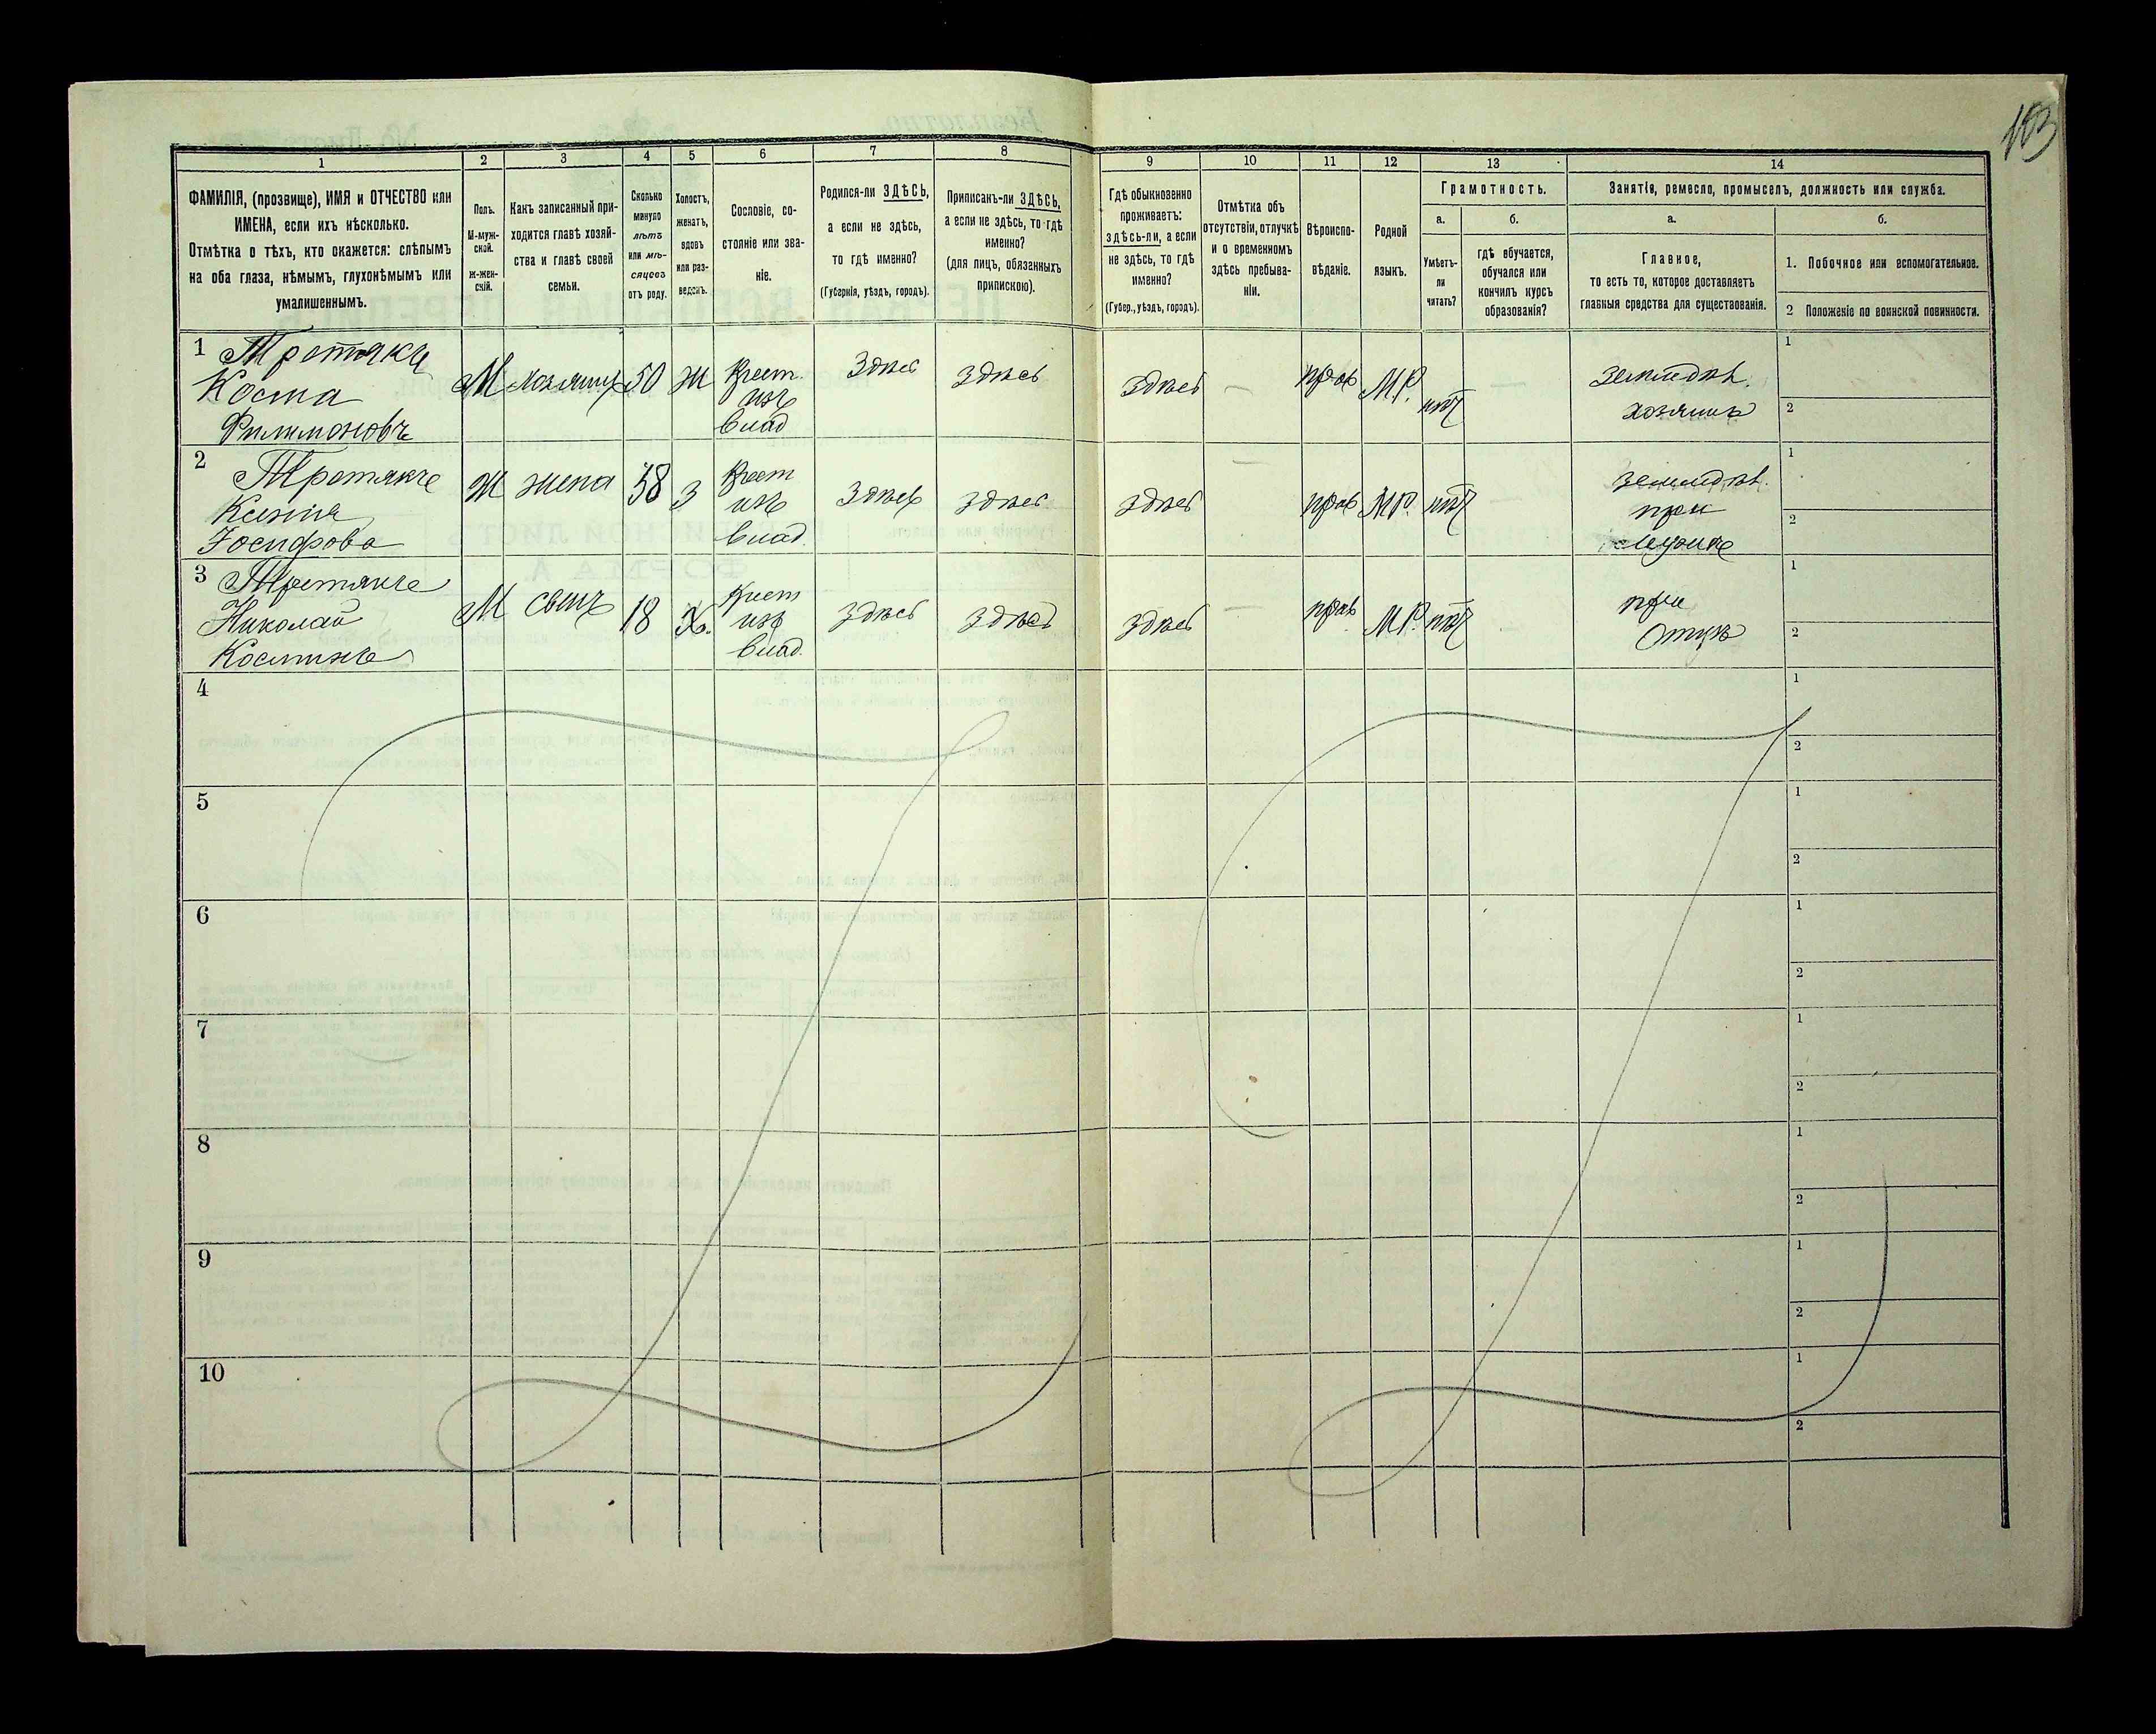 103
1 2 3 4 5 6 7 8 9 10 11 12 13 14
ФАМИЛІЯ, (прозвище), ИМЯ и ОТЧЕСТВО или
ИМЕНА, если ихъ нѣсколько.
Отмѣтка о тѣхъ, кто окажется: слѣпымъ
на оба глаза, нѣмымъ, глухонѣмымъ или
умалишеннымъ.
Полъ.
М-муж-
ской.
ж-жен-
скій.
Какъ записанный при-
ходится главѣ хозяй-
ства и главѣ своей
семьи.
Сколько
минуло
лѣтъ
или мѣ-
сяцевъ
отъ роду.
Холостъ,
женатъ,
вдовъ
или раз-
веденъ.
Сословіе, со-
стояніе или зва-
ніе.
Родился-ли ЗДѢСЬ,
а если не здѣсь,
то гдѣ именно?
(Губернія, уѣздъ, городъ).
Приписанъ-ли ЗДѢСЬ,
а если не здѣсь, то гдѣ
именно?
(для лицъ, обязанныхъ
припискою).
Гдѣ обыкновенно
проживаетъ:
здѣсь-ли, а если
не здѣсь, то гдѣ
именно?
(Губер., уѣздъ, городъ).
Отмѣтка объ
отсутствіи, отлучкѣ
и о временномъ
здѣсь пребыва-
ніи.
Вѣроиспо-
вѣданіе.
Родной
языкъ.
Грамотность.
а.
Умѣетъ-
ли
читать?
б.
гдѣ обучается,
обучался или
кончилъ курсъ
образованія?
Занятіе, ремесло, промыселъ, должность или служба.
а.
Главное,
то есть то, которое доставляетъ
главныя средства для существованія.
б.
1. Побочное или вспомогательное.
2 Положеніе по воинской повинности.
1 Третякъ
Косма
Филимоновъ
М хозяинъ 50 ж
Крест.
изъ
влад
Здѣсь здѣсь здѣсь — прав М.Р. нѣт
земледѣл.
хозяинъ
1
2
2 Третякъ
Ксенія
Іосифова
Ж жена 58 З
Крест
изъ
влад.
Здѣсь здѣсь здѣсь — прав М.Р. нѣт
земледѣл.
при
мужѣ
1
2
3 Третякъ
Николай
Косминъ
М сынъ 18 Х.
Крест
изъ
влад.
здѣсь здѣсь здѣсь — прав М.Р. нѣт
при
отцѣ
1
2
4
1
2
5
1
2
6
1
2
7
1
2
8
1
2
9
1
2
10
1
2